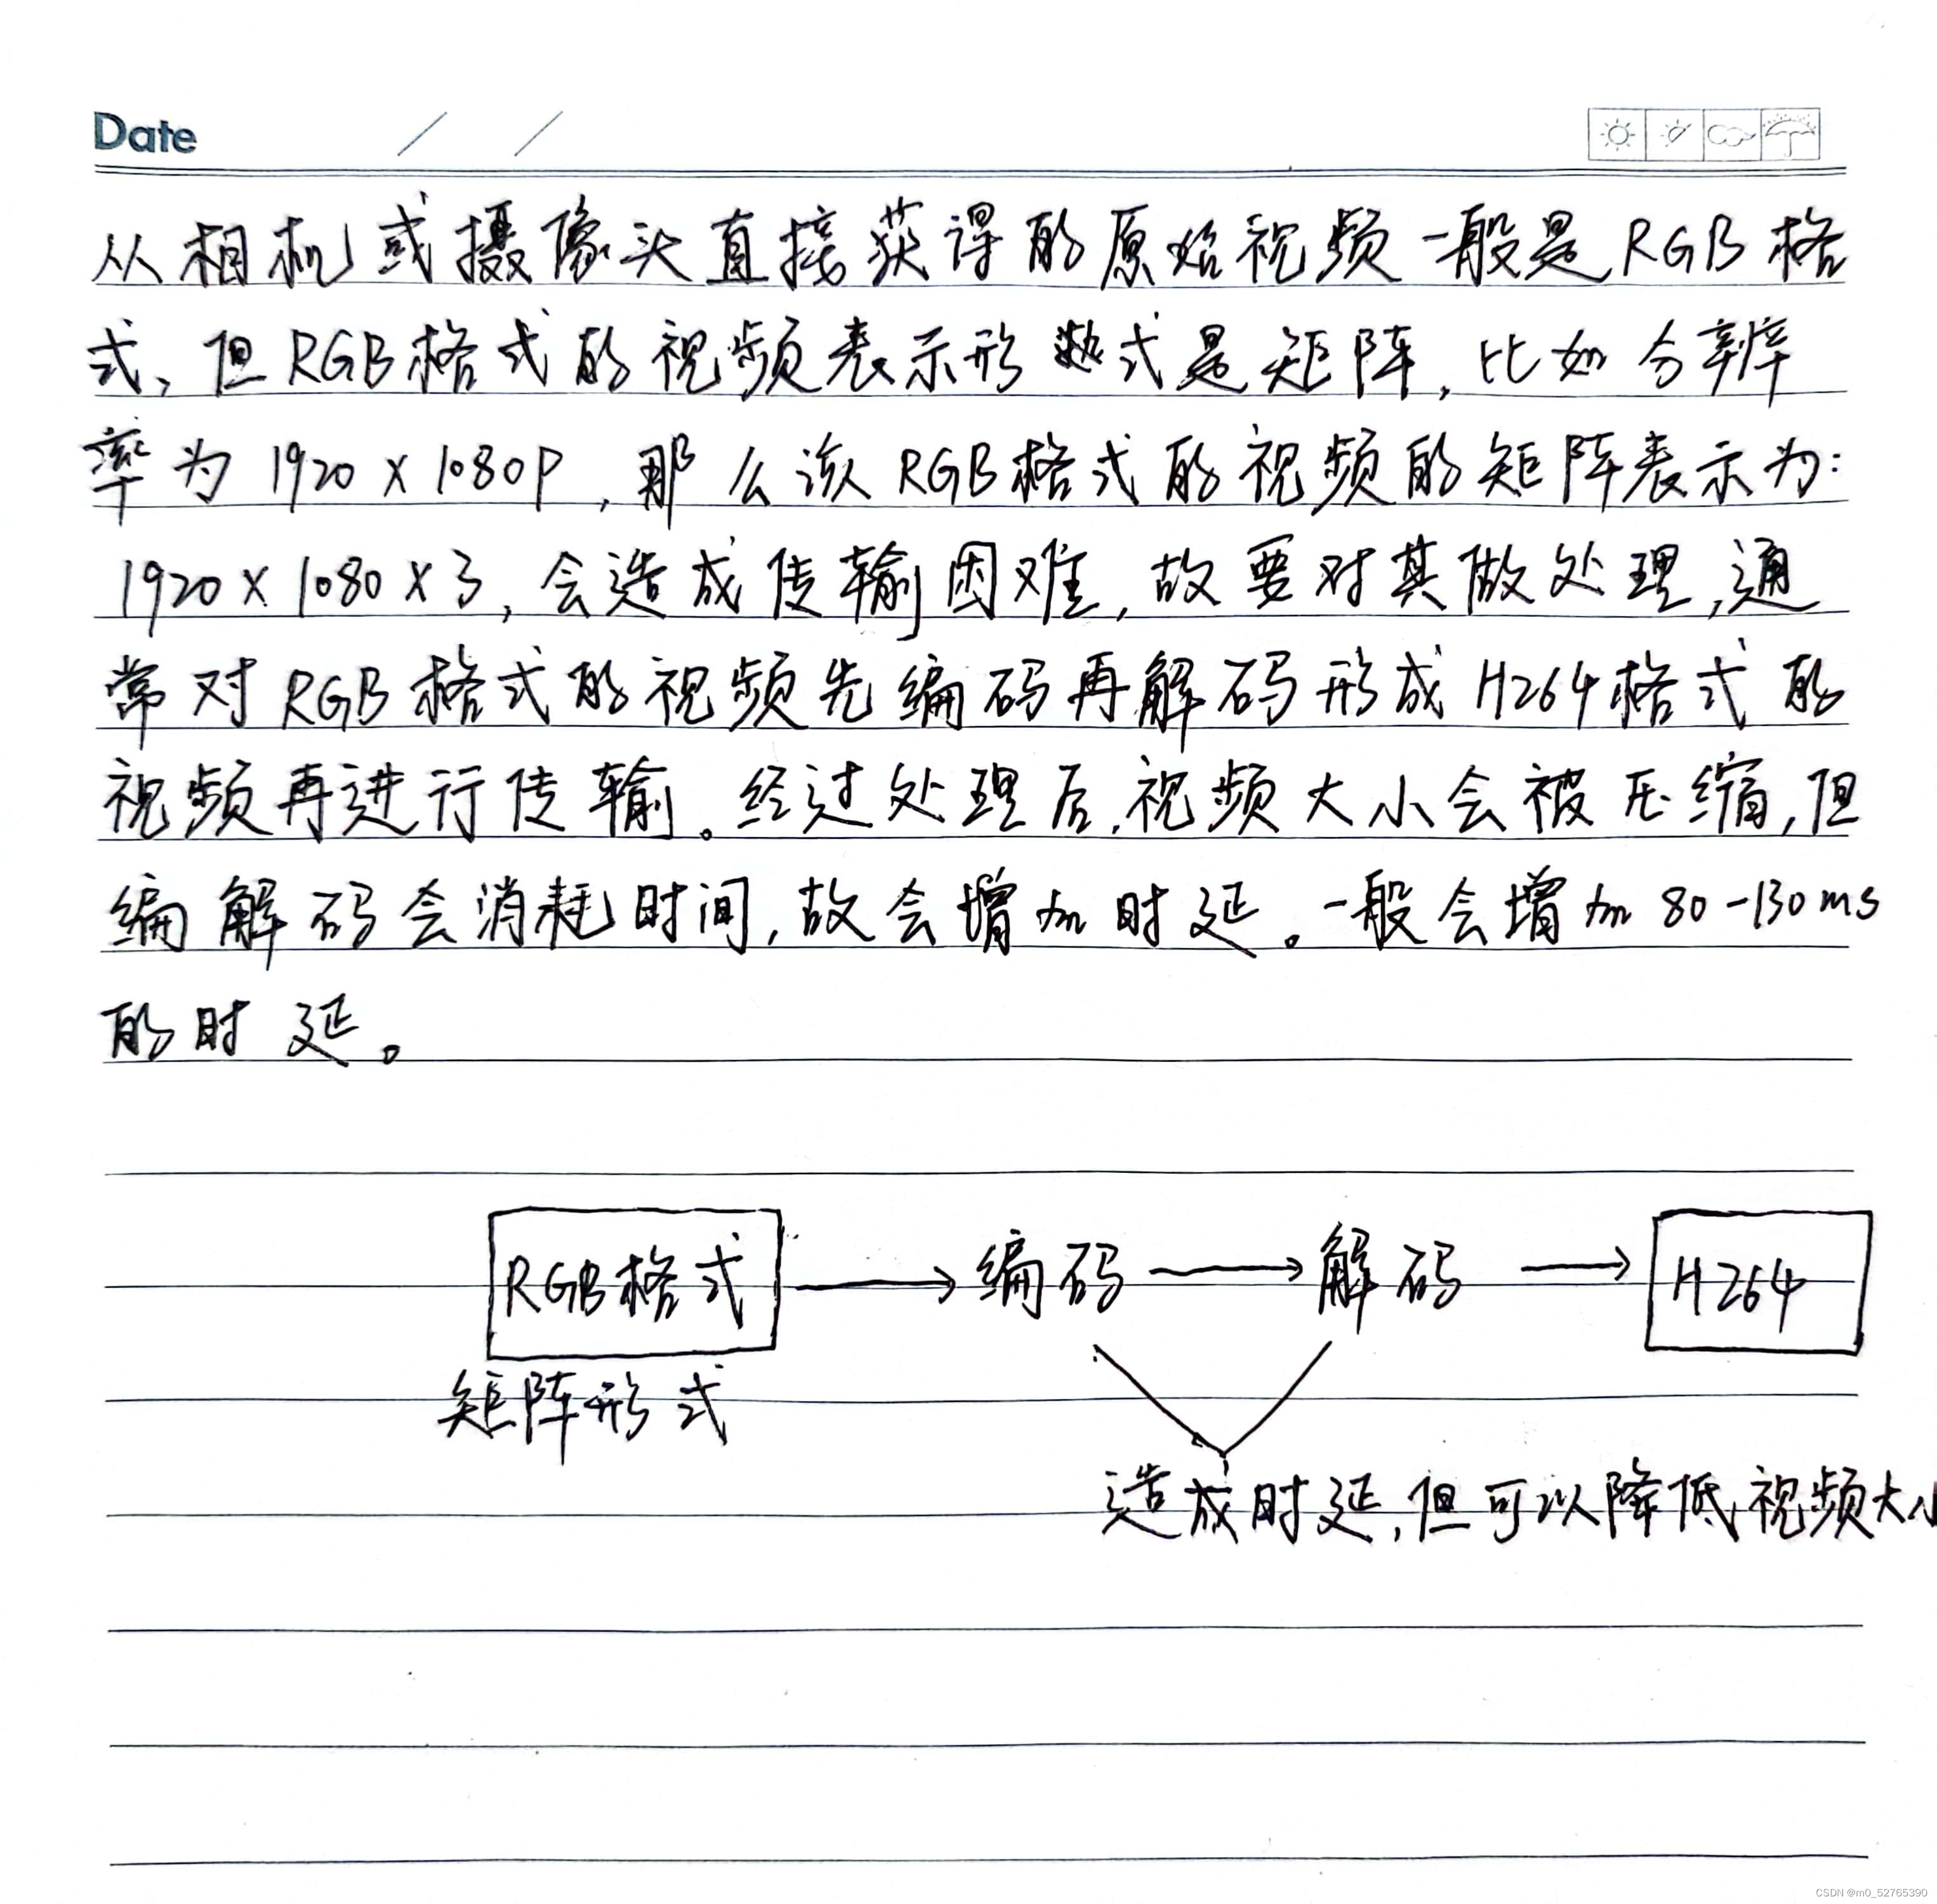 Date / /
从相机或摄像头直接获得的原始视频一般是RGB格
式，但RGB格式的视频表示形式是矩阵，比如分辨
率为1920×1080P，那么该RGB格式的视频的矩阵表示为：
1920×1080×3，会造成传输困难，故要对其做处理，通
常对RGB格式的视频先编码再解码形成H264格式的
视频再进行传输。经过处理后，视频大小会被压缩，但
编解码会消耗时间，故会增加时延。一般会增加80-130ms
的时延。
RGB格式 → 编码 → 解码 → H264
矩阵形式
造成时延，但可以降低视频大小
CSDN @m0_52765390